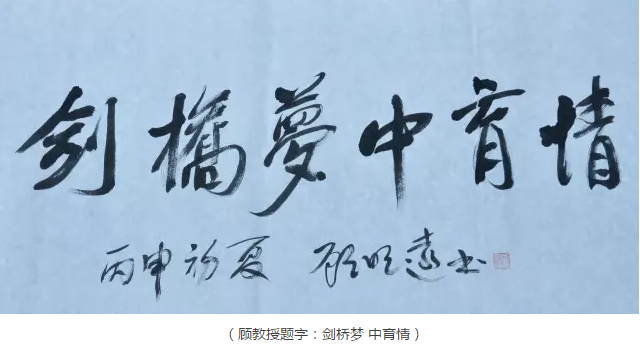 剑橋夢中育情
丙申初夏 顾明远书
（顾教授题字：剑桥梦 中育情）